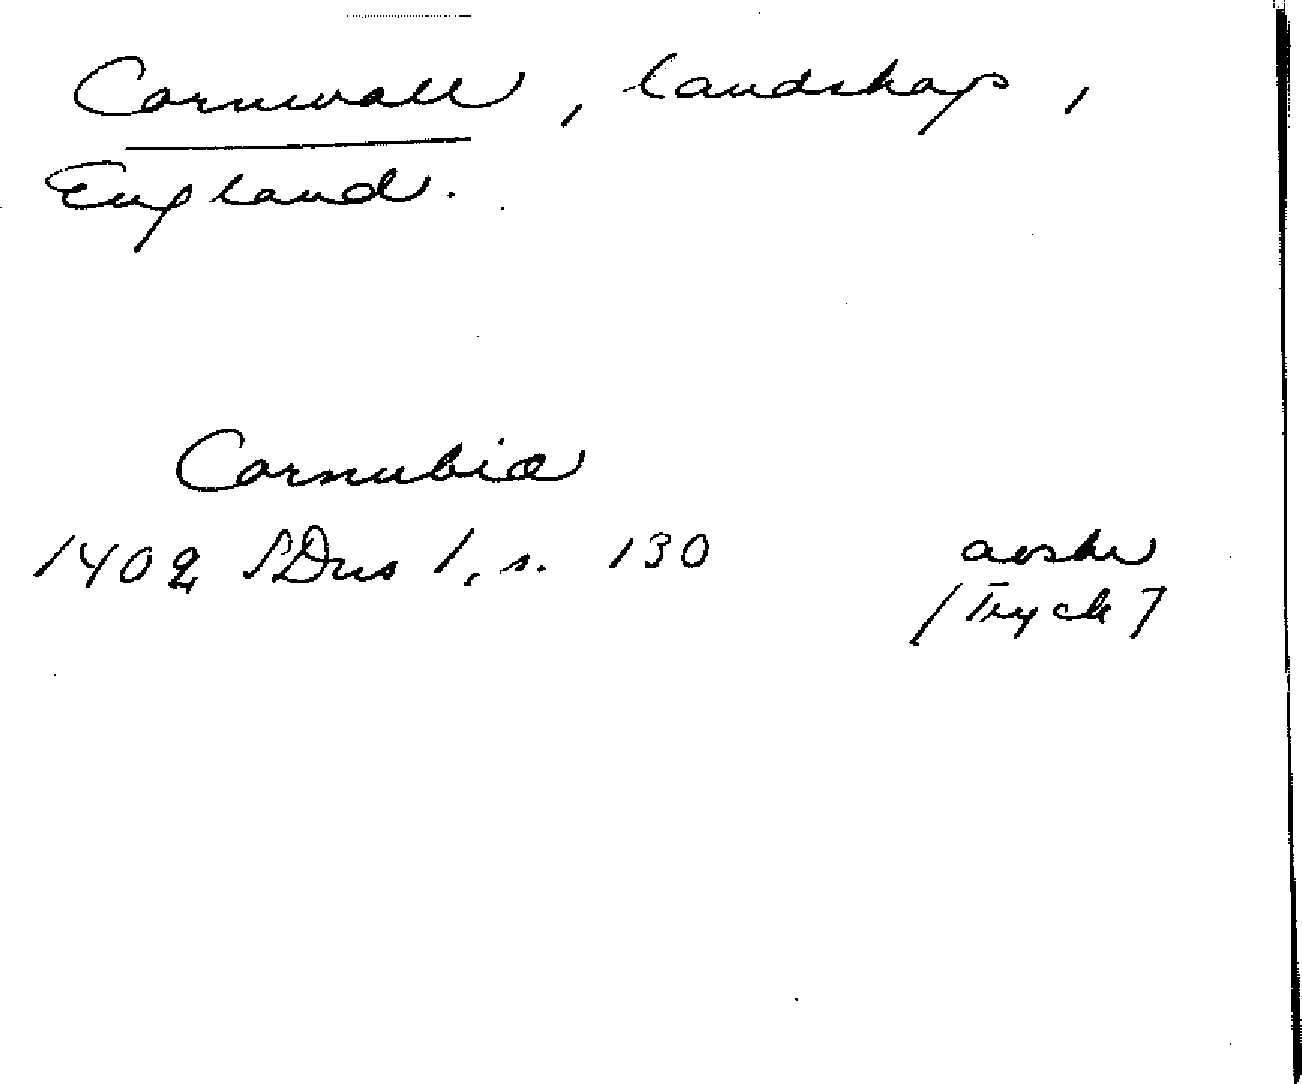 Cornwall, landskap,
England.
Cornubia
1402 SDns 1, s. 130 avskr
[Tryck]